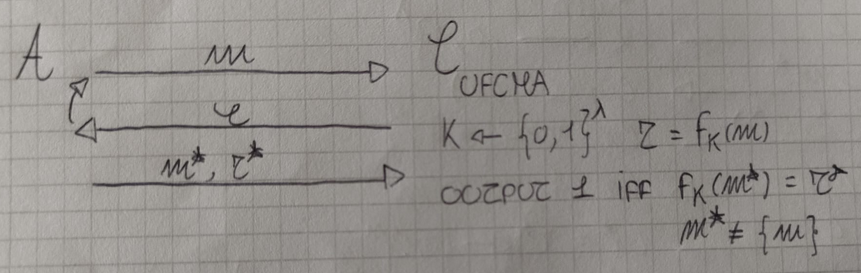 A m C UFCMA
τ K ← {0,1}^λ τ = f_K(m)
m*, τ* OUTPUT 1 iff f_K(m*) = τ*
m* ≠ {m}